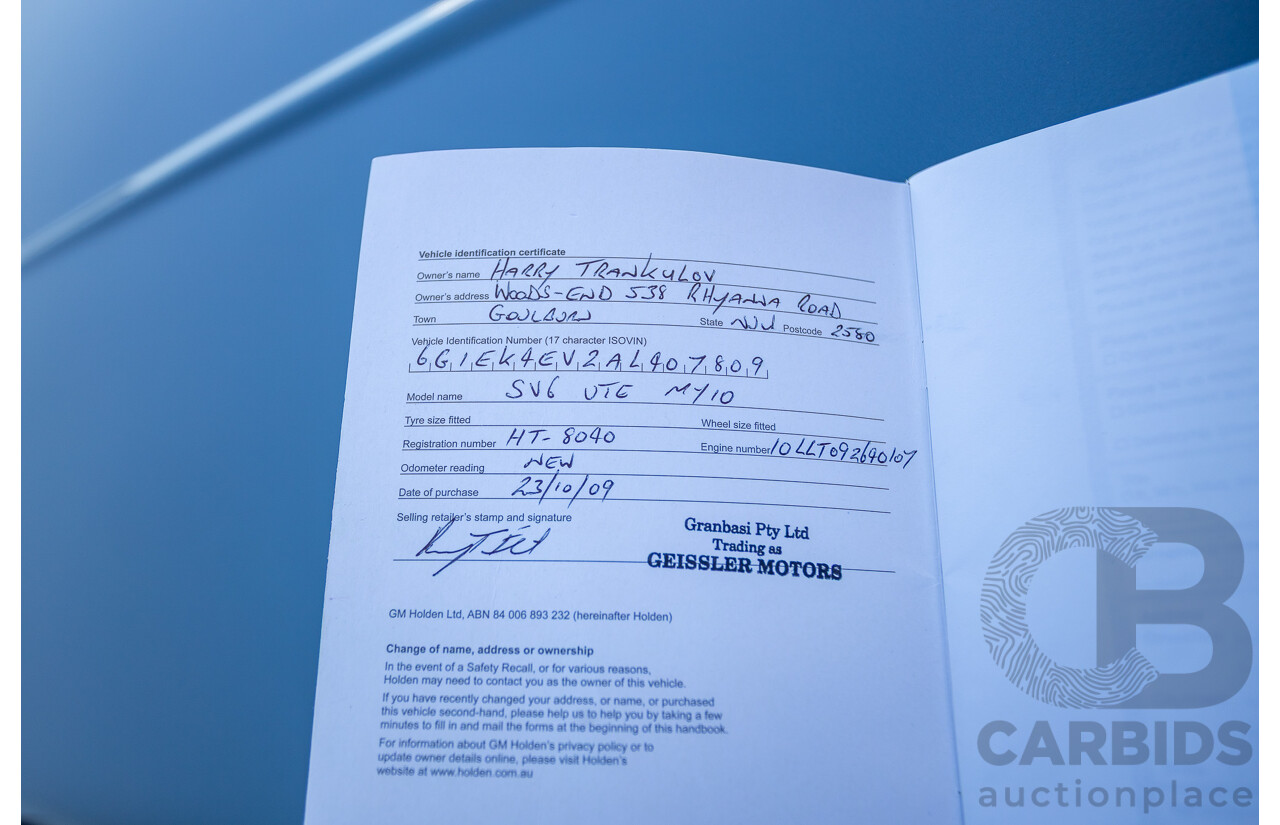 Vehicle identification certificate
Owner's name HARRY TRANKULOV
Owner's address WOODS-END 538 RHYANNA ROAD
Town GOULBURN State NSW Postcode 2580
Vehicle Identification Number (17 character ISOVIN)
6G1EK4EV2AL407809
Model name SV6 UTE MY10
Tyre size fitted Wheel size fitted
Registration number HT-8040 Engine number 10LLT092640107
Odometer reading NEW
Date of purchase 23/10/09
Selling retailer's stamp and signature
Granbasi Pty Ltd
Trading as
GEISSLER MOTORS
GM Holden Ltd, ABN 84 006 893 232 (hereinafter Holden)
Change of name, address or ownership
In the event of a Safety Recall, or for various reasons,
Holden may need to contact you as the owner of this vehicle.
If you have recently changed your address, or name, or purchased
this vehicle second-hand, please help us to help you by taking a few
minutes to fill in and mail the forms at the beginning of this handbook.
For information about GM Holden's privacy policy or to
update owner details online, please visit Holden's
website at www.holden.com.au
CB
CARBIDS
auctionplace